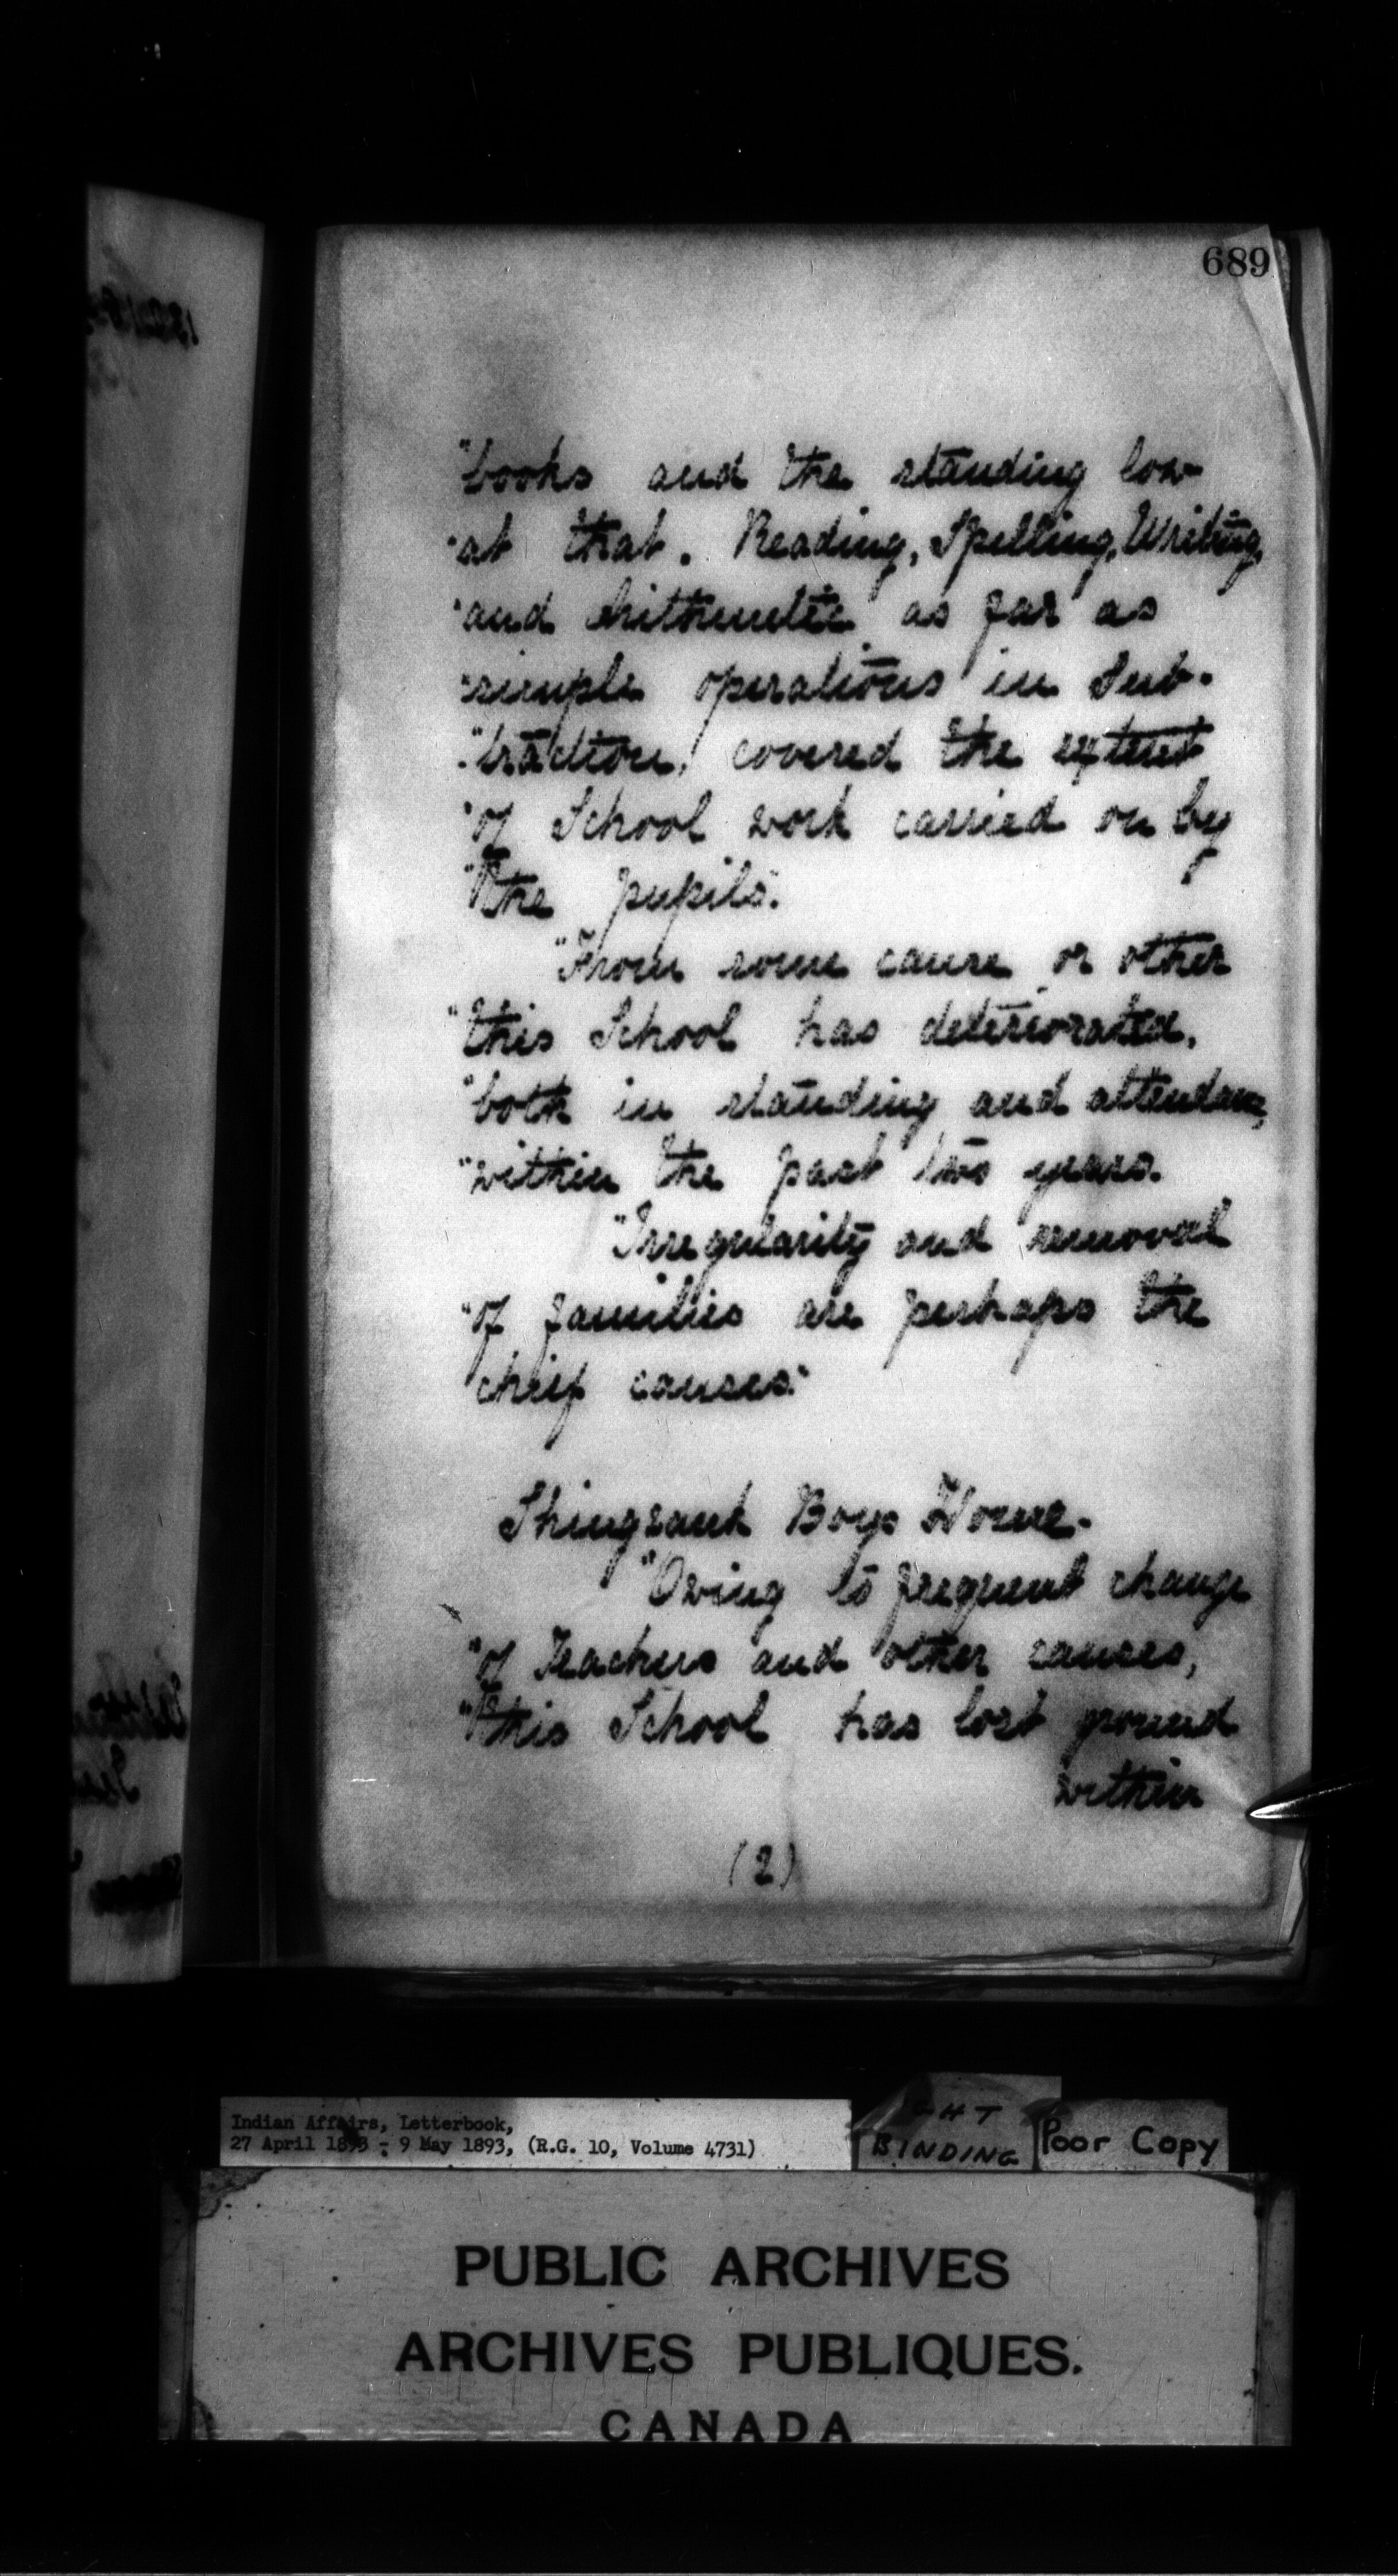 689
"books and the standing low
"at that. Reading, Spelling, Writing,
"and Arithmetic as far as
"simple operations in Sub-
"traction, covered the extent
"of School work carried on by
"the pupils.
"From some cause or other
"this School has deteriorated,
"both in standing and attendance,
"within the past two years.
"Irregularity and removal
"of families are perhaps the
"chief causes."
Shingwauk Boys Home.
"Owing to frequent change
"of Teachers and other causes,
"this School has lost ground
within
(2)
Indian Affairs, Letterbook,
27 April 1893 - 9 May 1893, (R.G. 10, Volume 4731)
BINDING
Poor Copy
PUBLIC ARCHIVES
ARCHIVES PUBLIQUES.
CANADA